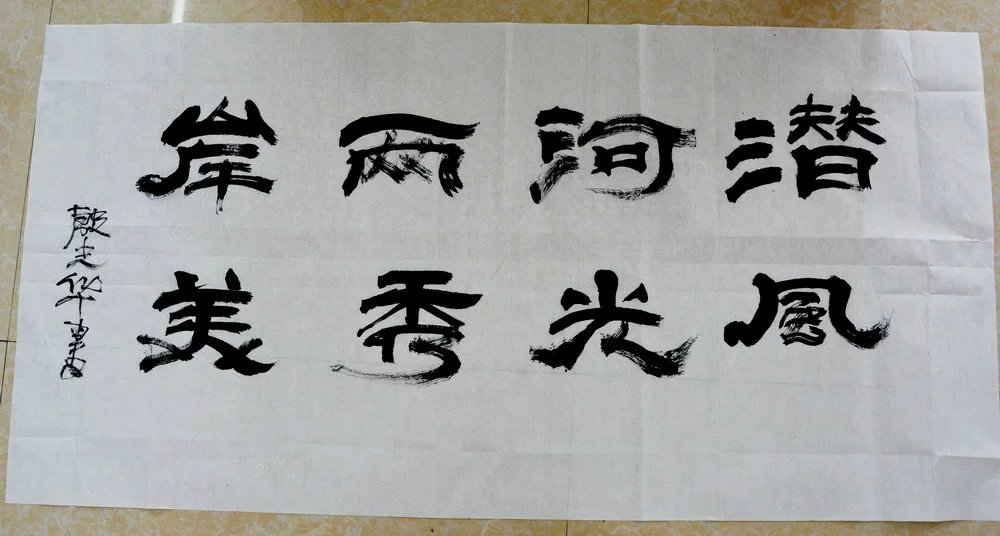 潜河两岸
风光秀美
殷光华书